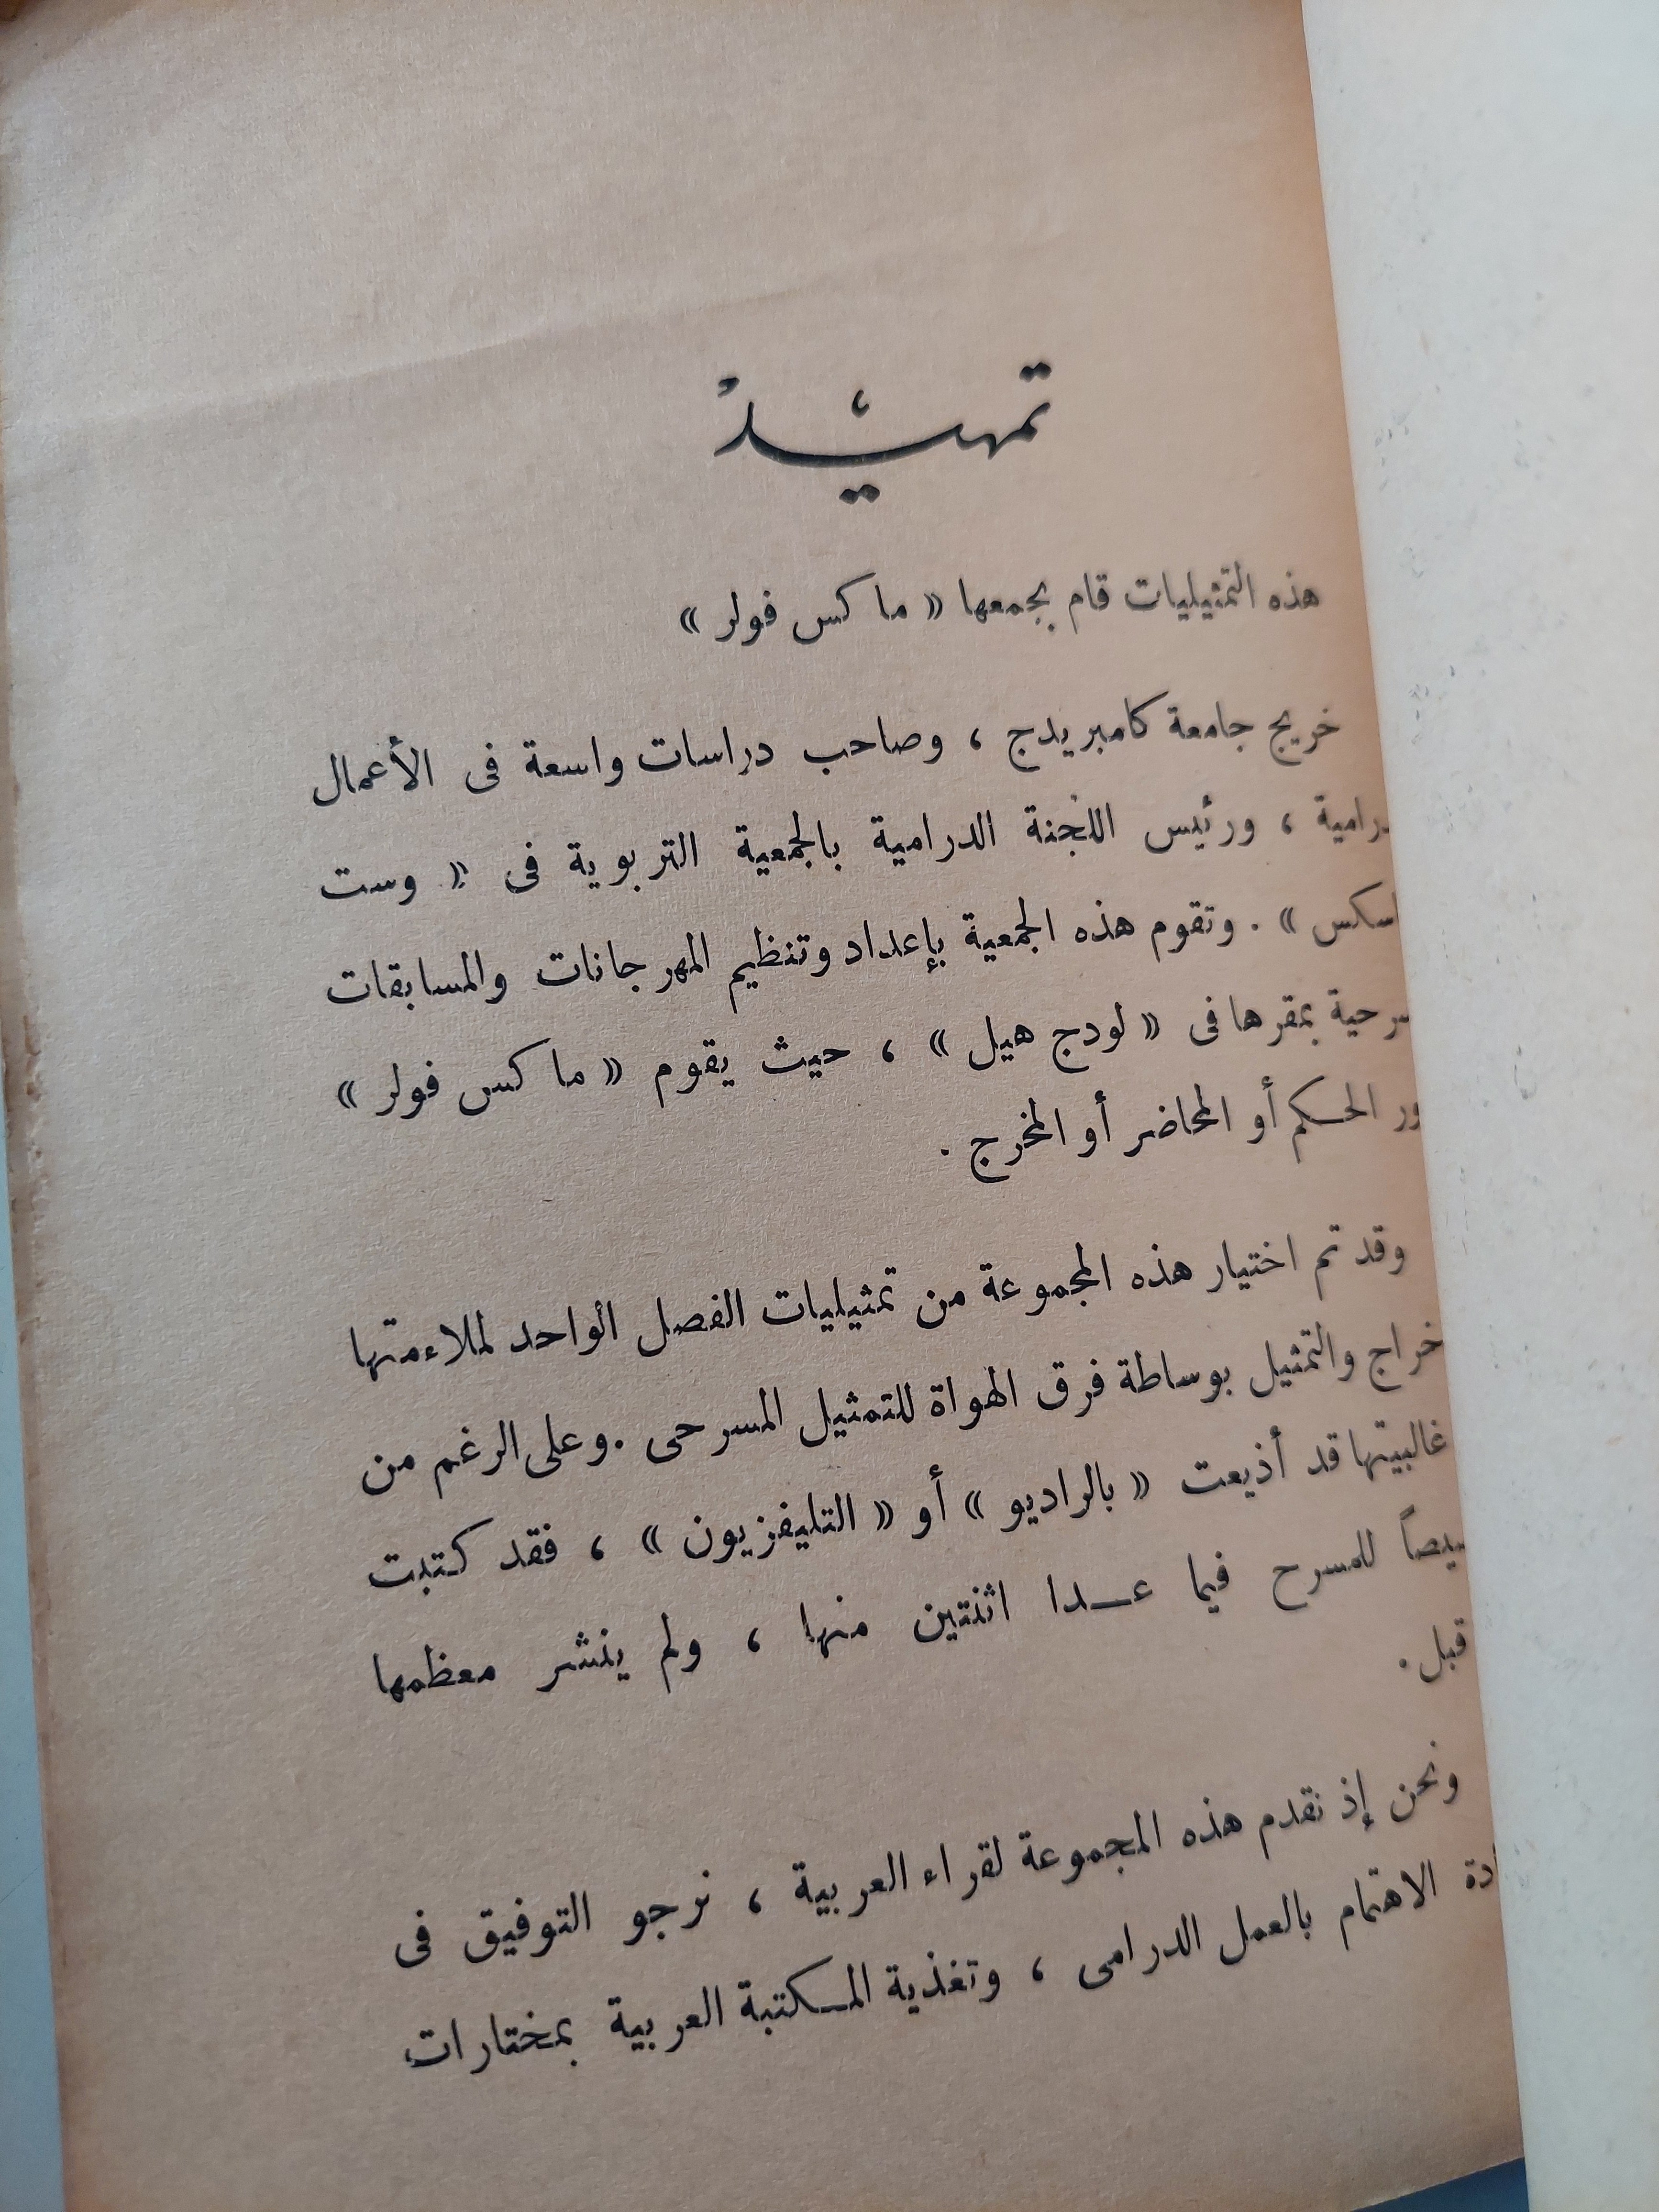 تمهيد
هذه التمثيليات قام بجمعها « ماكس فولر »
خريج جامعة كامبريدج ، وصاحب دراسات واسعة فى الأعمال
، ورئيس اللجنة الدرامية بالجمعية التربوية فى « وست
» . وتقوم هذه الجمعية بإعداد وتنظيم المهرجانات والمسابقات
بمقرها فى « لودج هيل » ، حيث يقوم « ماكس فولر »
الحكم أو المحاضر أو المخرج .
وقد تم اختيار هذه المجموعة من تمثيليات الفصل الواحد لملاءمتها
والتمثيل بوساطة فرق الهواة للتمثيل المسرحى . وعلى الرغم من
غالبيتها قد أذيعت « بالراديو » أو « التليفزيون » ، فقد كتبت
للمسرح فيما عدا اثنتين منها ، ولم ينشر معظمها
قبل .
ونحن إذ نقدم هذه المجموعة لقراء العربية ، نرجو التوفيق فى
الاهتمام بالعمل الدرامى ، وتغذية المكتبة العربية بمختارات